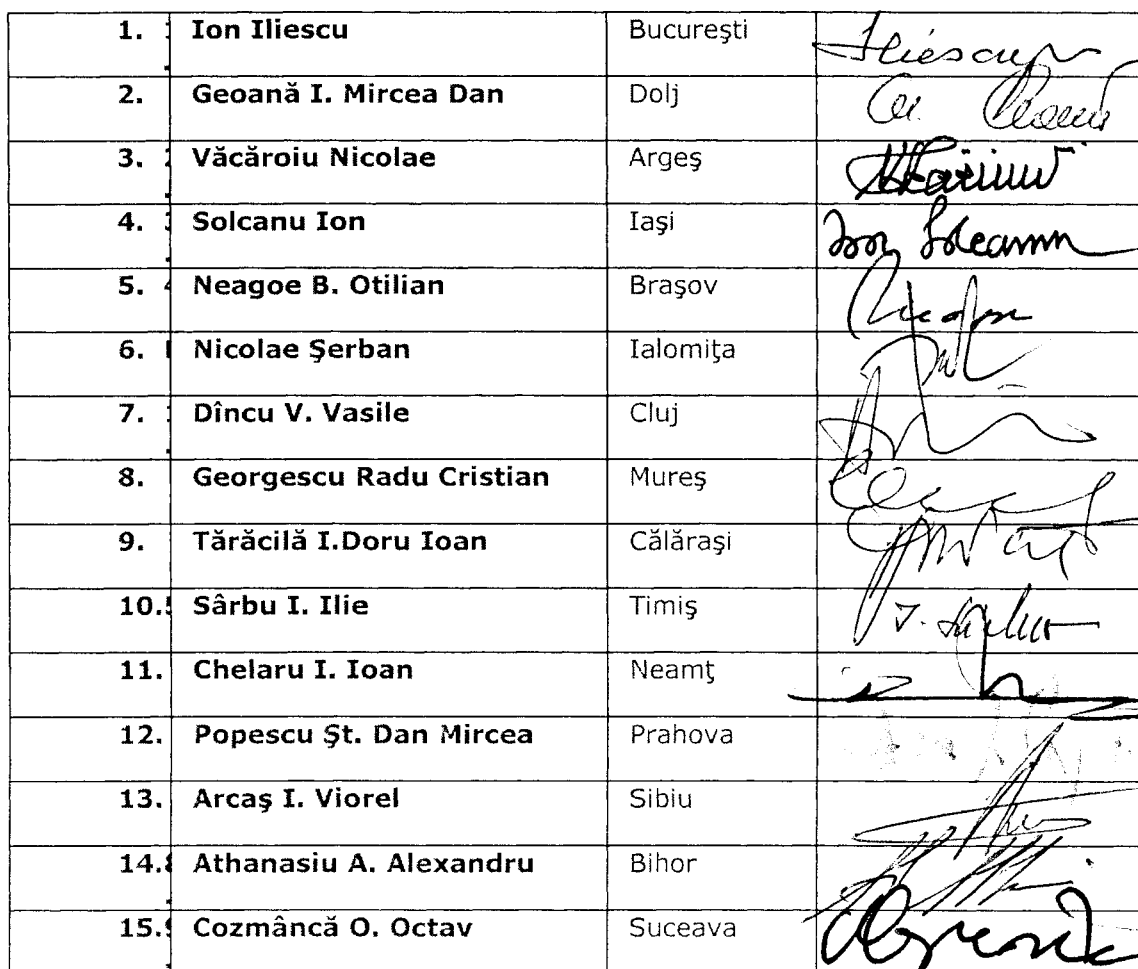 1. Ion Iliescu București Iliescu
2. Geoană I. Mircea Dan Dolj
3. Văcăroiu Nicolae Argeş
4. Solcanu Ion Iaşi Ion Solcanu
5. Neagoe B. Otilian Braşov
6. Nicolae Şerban Ialomiţa
7. Dîncu V. Vasile Cluj
8. Georgescu Radu Cristian Mureş
9. Tărăcilă I.Doru Ioan Călăraşi
10. Sârbu I. Ilie Timiş
11. Chelaru I. Ioan Neamţ
12. Popescu Şt. Dan Mircea Prahova
13. Arcaş I. Viorel Sibiu
14. Athanasiu A. Alexandru Bihor
15. Cozmâncă O. Octav Suceava